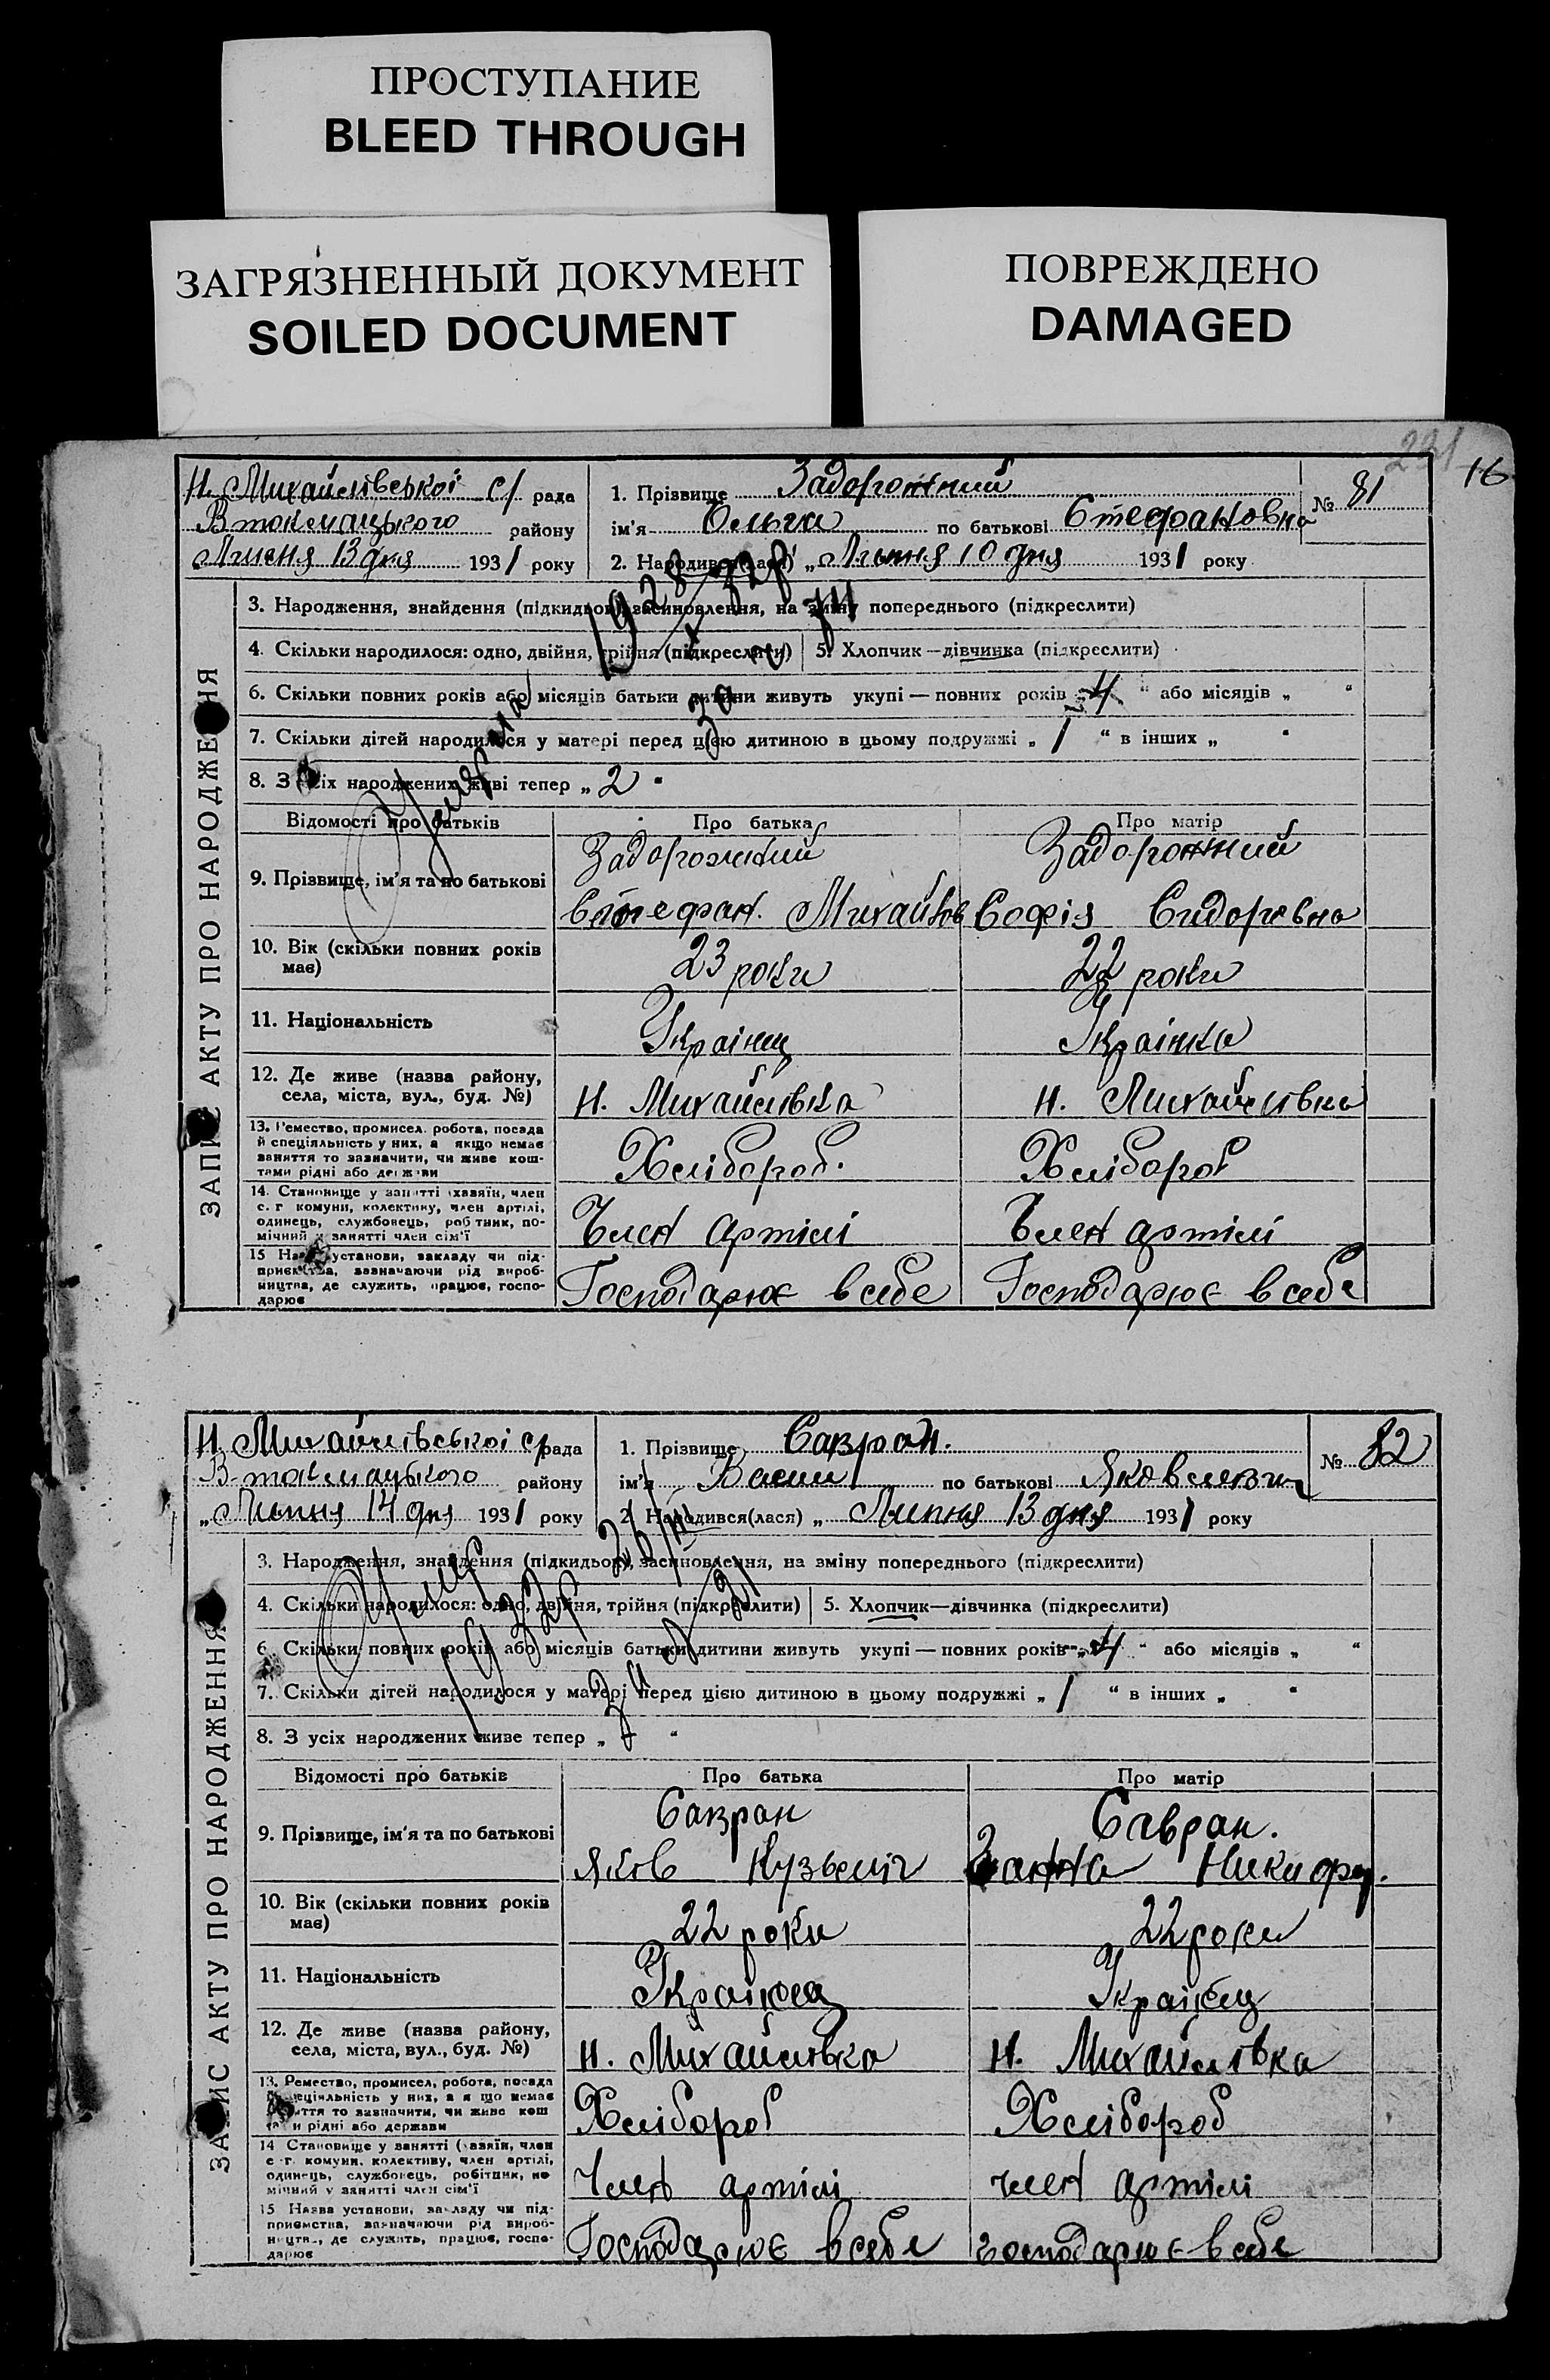 ПРОСТУПАНИЕ
BLEED THROUGH
ЗАГРЯЗНЕННЫЙ ДОКУМЕНТ
SOILED DOCUMENT
ПОВРЕЖДЕНО
DAMAGED
231 16
Н. Михайлівської с/ рада
В токмацького району
Липня 13 дня 1931 року
1. Прізвище Задорожний
№ 81
ім'я Ольга по батькові Стефановна
2. Народився(лася) „ Липня 10 дня 1931 року
ЗАПИС АКТУ ПРО НАРОДЖЕННЯ
3. Народження, знайдення (підкидьок), засиновлення, на зміну попереднього (підкреслити)
4. Скільки народилося: одно, двійня, трійня (підкреслити) 5. Хлопчик—дівчинка (підкреслити)
6. Скільки повних років або місяців батьки дитини живуть укупі — повних років „ 4 “ або місяців „ “
7. Скільки дітей народилося у матері перед цією дитиною в цьому подружжі „ 1 “ в інших „ “
8. З усіх народжених живі тепер „ 2 “
Відомості про батьків Про батька Про матір
9. Прізвище, ім'я та по батькові
Задорожний Задорожний
Стефан. Михайлов Софія Сидоровна
10. Вік (скільки повних років має) 23 роки 22 роки
11. Національність Українец Українка
12. Де живе (назва району, села, міста, вул., буд. №) Н. Михайлівка Н. Михайлівка
13. Ремество, промисел, робота, посада
й спеціяльність у них, а якщо немає
заняття то зазначити, чи живе кош-
тами рідні або держави
Хлібороб. Хлібороб
14. Становище у занятті (хазяїн, член
с. г комуни, колективу, член артілі,
одинець, службовець, робітник, по-
мічний у занятті член сім'ї
Член артілі Член артілі
15 Назва установи, закладу чи під-
приємства, зазначаючи рід вироб-
ництва, де служить, працює, госпо-
дарює
Господарює в себе Господарює в себе
Н. Михайлівської с/рада
В-токмацького району
„ Липня 14 дня 1931 року
1. Прізвище Савран.
№ 82
ім'я Васил по батькові Яковлевич
2. Народився(лася) „ Липня 13 дня 1931 року
ЗАПИС АКТУ ПРО НАРОДЖЕННЯ
3. Народження, знайдення (підкидьок), засиновлення, на зміну попереднього (підкреслити)
4. Скільки народилося: одно, двійня, трійня (підкреслити) 5. Хлопчик—дівчинка (підкреслити)
6. Скільки повних років або місяців батьки дитини живуть укупі — повних років „ 4 “ або місяців „ “
7. Скільки дітей народилося у матері перед цією дитиною в цьому подружжі „ 1 “ в інших „ “
8. З усіх народжених живе тепер „ “
Відомості про батьків Про батька Про матір
9. Прізвище, ім'я та по батькові
Савран Савран.
Яков Кузьміч Ганна Никифор.
10. Вік (скільки повних років має) 22 роки 22 роки
11. Національність Українец Українец
12. Де живе (назва району, села, міста, вул., буд. №) Н. Михайлівка Н. Михайлівка
13. Ремество, промисел, робота, посада
й спеціяльність у них, а якщо немає
заняття то зазначити, чи живе кош
тами рідні або держави
Хлібороб Хлібороб
14 Становище у занятті (хазяїн, член
с.-г. комуни, колективу, член артілі,
одинець, службовець, робітник, по
мічний у занятті член сім'ї
Член артілі член артілі
15 Назва установи, закладу чи під-
приємства, зазначаючи рід вироб-
ництв., де служить, працює, госпо-
дарює
Господарює в себе господарює в себе